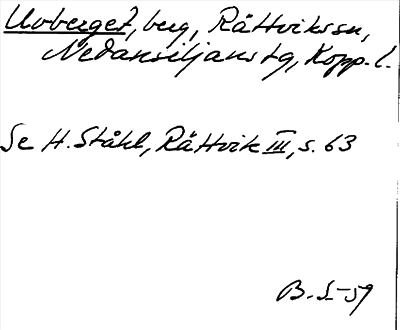 Uvberget, berg, Rättvikssn,
Nedansiljans tg, Kopp. l.
Se H. Ståhl, Rättvik III, s. 63
B. L-59